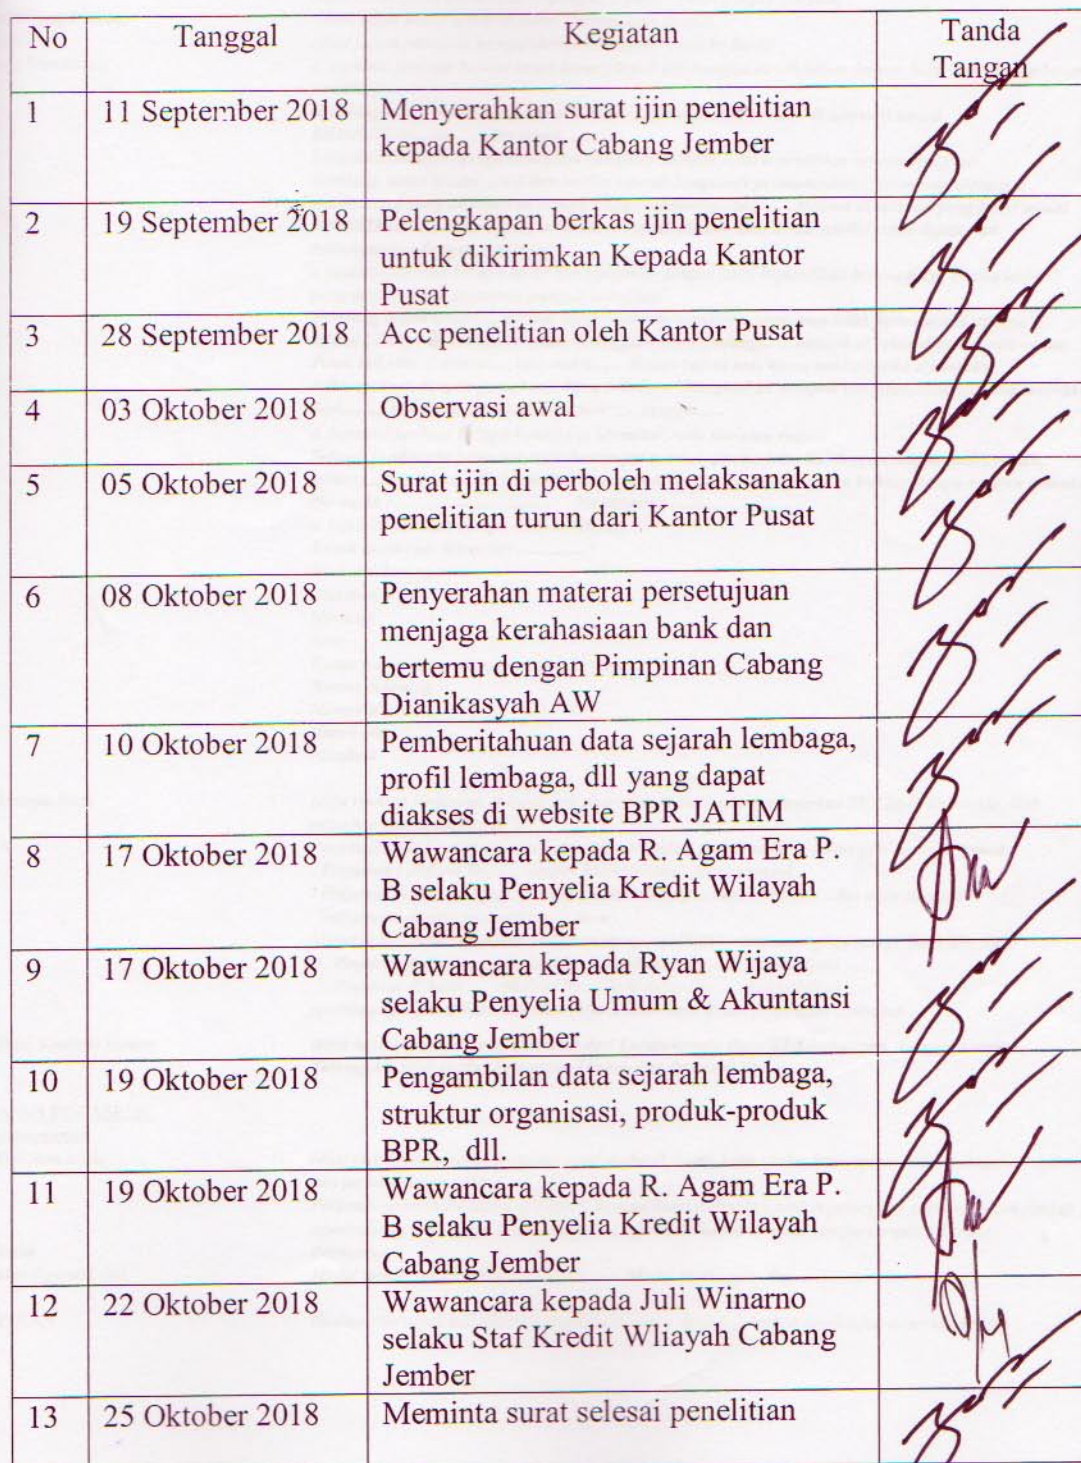 No Tanggal Kegiatan Tanda
Tangan
1 11 September 2018 Menyerahkan surat ijin penelitian
kepada Kantor Cabang Jember
2 19 September 2018 Pelengkapan berkas ijin penelitian
untuk dikirimkan Kepada Kantor
Pusat
3 28 September 2018 Acc penelitian oleh Kantor Pusat
4 03 Oktober 2018 Observasi awal
5 05 Oktober 2018 Surat ijin di perboleh melaksanakan
penelitian turun dari Kantor Pusat
6 08 Oktober 2018 Penyerahan materai persetujuan
menjaga kerahasiaan bank dan
bertemu dengan Pimpinan Cabang
Dianikasyah AW
7 10 Oktober 2018 Pemberitahuan data sejarah lembaga,
profil lembaga, dll yang dapat
diakses di website BPR JATIM
8 17 Oktober 2018 Wawancara kepada R. Agam Era P.
B selaku Penyelia Kredit Wilayah
Cabang Jember
9 17 Oktober 2018 Wawancara kepada Ryan Wijaya
selaku Penyelia Umum & Akuntansi
Cabang Jember
10 19 Oktober 2018 Pengambilan data sejarah lembaga,
struktur organisasi, produk-produk
BPR, dll.
11 19 Oktober 2018 Wawancara kepada R. Agam Era P.
B selaku Penyelia Kredit Wilayah
Cabang Jember
12 22 Oktober 2018 Wawancara kepada Juli Winarno
selaku Staf Kredit Wliayah Cabang
Jember
13 25 Oktober 2018 Meminta surat selesai penelitian